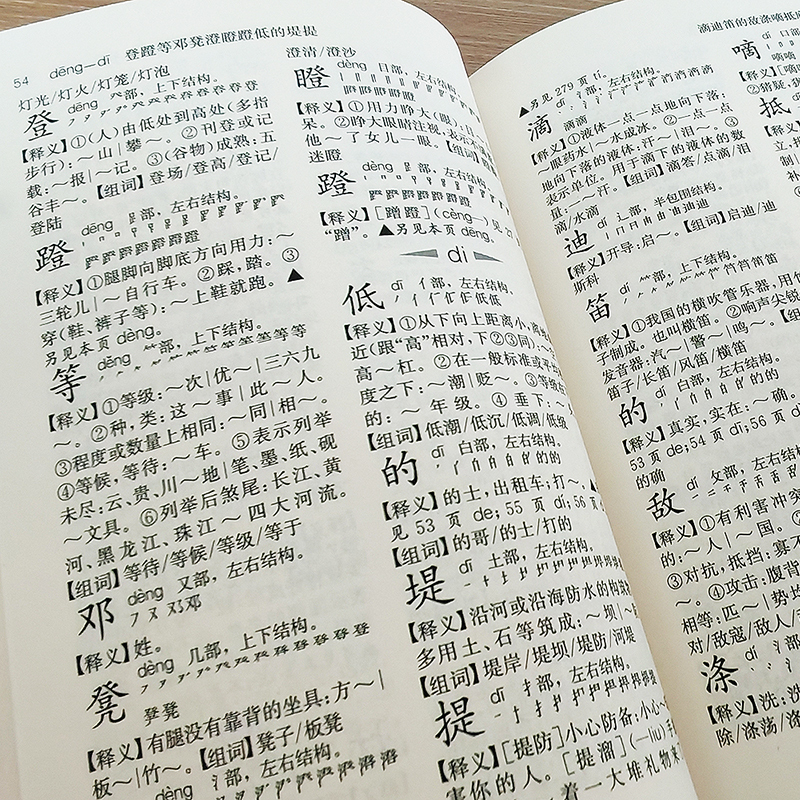 54 dēng—dī 登蹬等邓凳澄瞪蹬低的堤提
灯光/灯火/灯笼/灯泡
登 dēng 癶部，上下结构。
【释义】①(人)由低处到高处(多指
步行)：～山|攀～。②刊登或记
载：～报|～记。③(谷物)成熟：五
谷丰～。【组词】登场/登高/登记/
登陆
蹬 dēng 𧾷部，左右结构。
【释义】①腿脚向脚底方向用力：～
三轮儿|～自行车。②踩，踏。③
穿(鞋、裤子等)：～上鞋就跑。▲
另见本页 dèng。
等 děng ⺮部，上下结构。
【释义】①等级：～次|优～|三六九
～。②种，类：这～事|此～人。
③程度或数量上相同：～同|相～。
④等候，等待：～车。⑤表示列举
未尽：云、贵、川～地|笔、墨、纸、砚
～文具。⑥列举后煞尾：长江、黄
河、黑龙江、珠江～四大河流。
【组词】等待/等候/等级/等于
邓 dèng 又部，左右结构。
【释义】姓。
凳 dèng 几部，上下结构。
【释义】有腿没有靠背的坐具：方～|
板～|竹～。【组词】凳子/板凳
dèng 氵部，左右结构。
澄清/澄沙
瞪 dèng 目部，左右结构。
【释义】①用力睁大(眼)：目
呆。②睁大眼睛注视，表示不
他～了女儿一眼。【组词
迷瞪
蹬 dèng 𧾷部，左右结构。
【释义】［蹭蹬］(cèng—)见
“蹭”。▲另见本页 dēng。
dī
低 dī 亻部，左右结构。
【释义】①从下向上距离小，离地
近(跟“高”相对，下②③同)：～
高～杠。②在一般标准或平均
度之下：～潮|贬～。③等级在
的：～年级。④垂下：～
【组词】低潮/低沉/低调/低级
的 dī 白部，左右结构。
【释义】的士，出租车：打～。▲
见 53 页 de；55 页 dí；56 页
【组词】的哥/的士/打的
堤 dī 土部，左右结构。
【释义】沿河或沿海防水的构筑
多用土、石等筑成：～坝|
【组词】堤岸/堤坝/堤防/河堤
提 dī 扌部，左右结构。
【释义】［提防］小心防备：小心
害你的人。［提溜］(—liu)
着一大堆礼物来
滴迪笛的敌涤嘀抵
▲另见 279 页 tí。
滴 dī 氵部，左右结构。
【释义】①液体一点一点地向下落：
～眼药水|～水成冰。②一点一点
地向下落的液体：汗～|泪～。③
表示单位。用于滴下的液体的数
量：一～汗。【组词】滴答/点滴/泪
滴/水滴
迪 dí 辶部，半包围结构。
【释义】开导：启～。【组词】启迪/迪
斯科
笛 dí ⺮部，上下结构。
【释义】①我国的横吹管乐器，用竹
子制成。也叫横笛。②响声尖锐
发音器：汽～|警～|鸣～。【组
笛子/长笛/风笛/横笛
的 dí 白部，左右结构。
【释义】真实，实在：～确。
53 页 de；54 页 dī；56 页
的确
敌 dí 攵部，左右结构
【释义】①有利害冲突
的：～人|～国。②
③对抗，抵挡：寡不
～。④攻击：腹背
相等：匹～|势均
对/敌寇/敌人/
涤 dí 氵部
【释义】洗：洗
除/涤荡/涤
嘀
抵